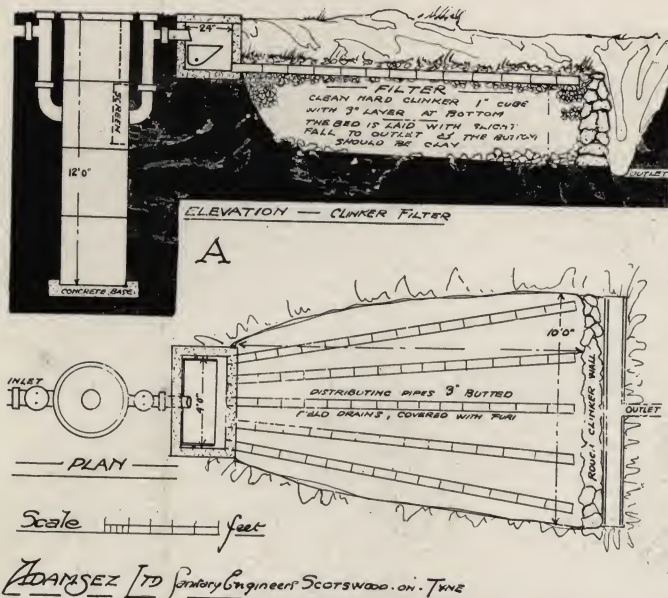 24"
SCREEN
12'0"
FILTER
CLEAN HARD CLINKER 1" CUBE
WITH 3" LAYER AT BOTTOM
THE BED IS LAID WITH SLIGHT
FALL TO OUTLET & THE BOTTOM
SHOULD BE CLAY
OUTLET
CONCRETE BASE.
ELEVATION — CLINKER FILTER
A
INLET
4'0"
PLAN
DISTRIBUTING PIPES 3" BUTTED
FIELD DRAINS, COVERED WITH
10'0"
ROUGH CLINKER WALL
OUTLET
Scale feet
ADAMSEZ LTD Sanitary Engineers SCOTSWOOD-ON-TYNE